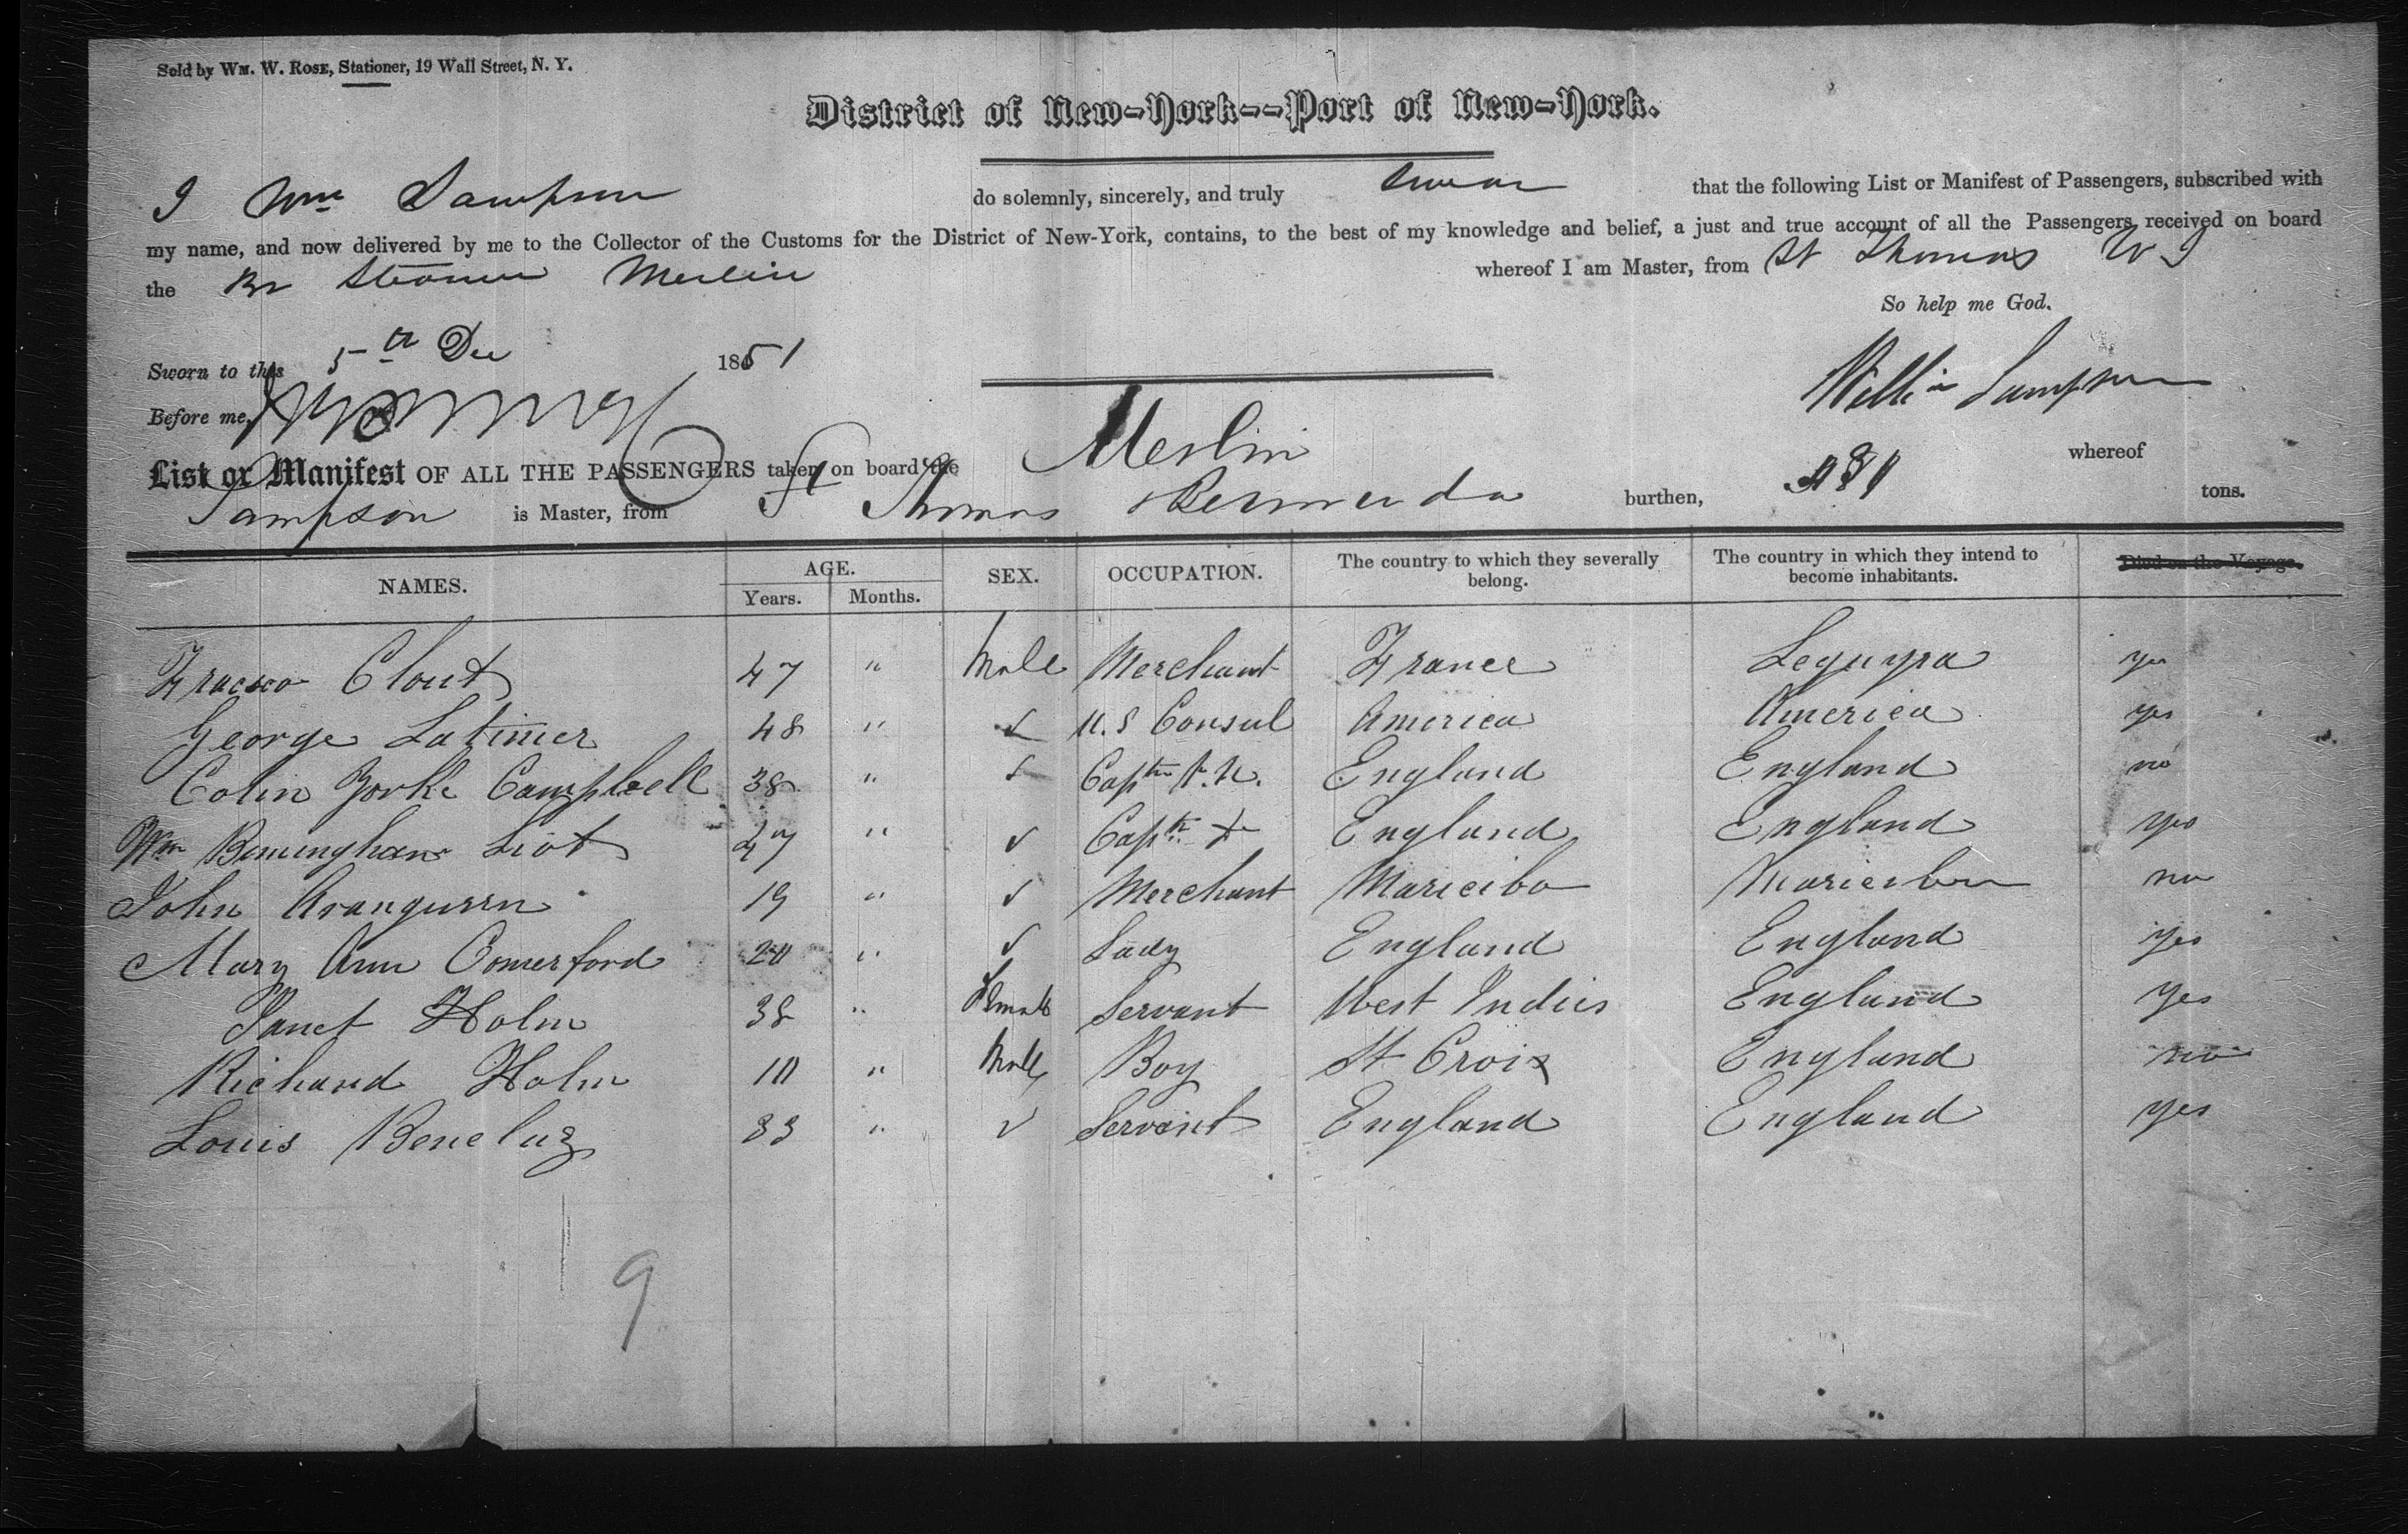 Sold by WM. W. ROSE, Stationer, 19 Wall Street, N. Y.
District of New-York--Port of New-York.
I Wm Sampson do solemnly, sincerely, and truly swear that the following List or Manifest of Passengers, subscribed with
my name, and now delivered by me to the Collector of the Customs for the District of New-York, contains, to the best of my knowledge and belief, a just and true account of all the Passengers received on board
the Br Steamer Merlin whereof I am Master, from St Thomas W I
So help me God.
Sworn to this 5th Dec 1851
William Sampson
Before me,
List or Manifest OF ALL THE PASSENGERS taken on board the Merlin whereof
Sampson is Master, from St Thomas & Bermuda burthen, tons.
NAMES. AGE. Years. Months. SEX. OCCUPATION. The country to which they severally belong. The country in which they intend to become inhabitants. Died on the Voyage.
Clout 47 " Male Merchant France Leguyra yes
George Latimer 48 " ✓ U.S Consul America America yes
Colin Yorke Campbell 38 " ✓ Captn R.N. England England no
Wm Birmingham Liot 47 " ✓ Captn England England yes
John Aranguren 19 " ✓ Merchant Maricibo Maricibo no
Mary Ann Comerford 20 " ✓ Lady England England yes
Janet Holm 38 " Female Servant West Indies England Yes
Richard Holm 10 " Male Boy St Croix England no
Louis Beneluz 33 " ✓ Servant England England yes
9